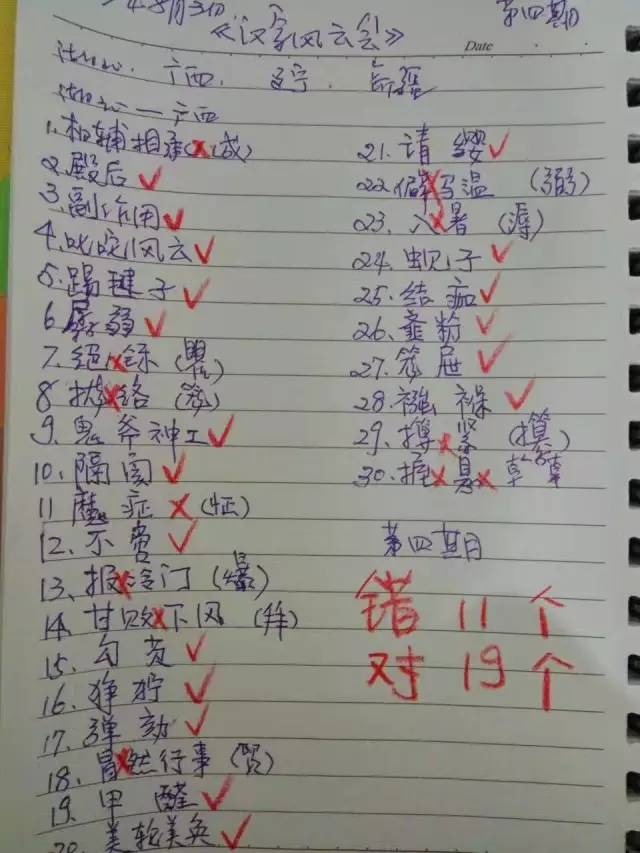 8月3日
第四期
《汉字风云会》
Date
广西 辽宁
广西
1.相辅相承(成)
2.殿后
3.副作用
4.叱咤风云
5.踢毽子
6.孱弱
7.
8.拢络(笼)
9.鬼斧神工
10.隔阂
11魔症(怔)
12.不
13.报冷门(爆)
14.甘败下风(拜)
15.勾芡
16.狰狞
17.弹劾
18.冒然行事(贸)
19.甲醛
20.美轮美奂
21.请缨
22.
23.入暑(溽)
24.蚬子
25.结痂
26.齑粉
27.笼屉
28.襁褓
29.紧(攥)
30.
第四期
错11个
对19个